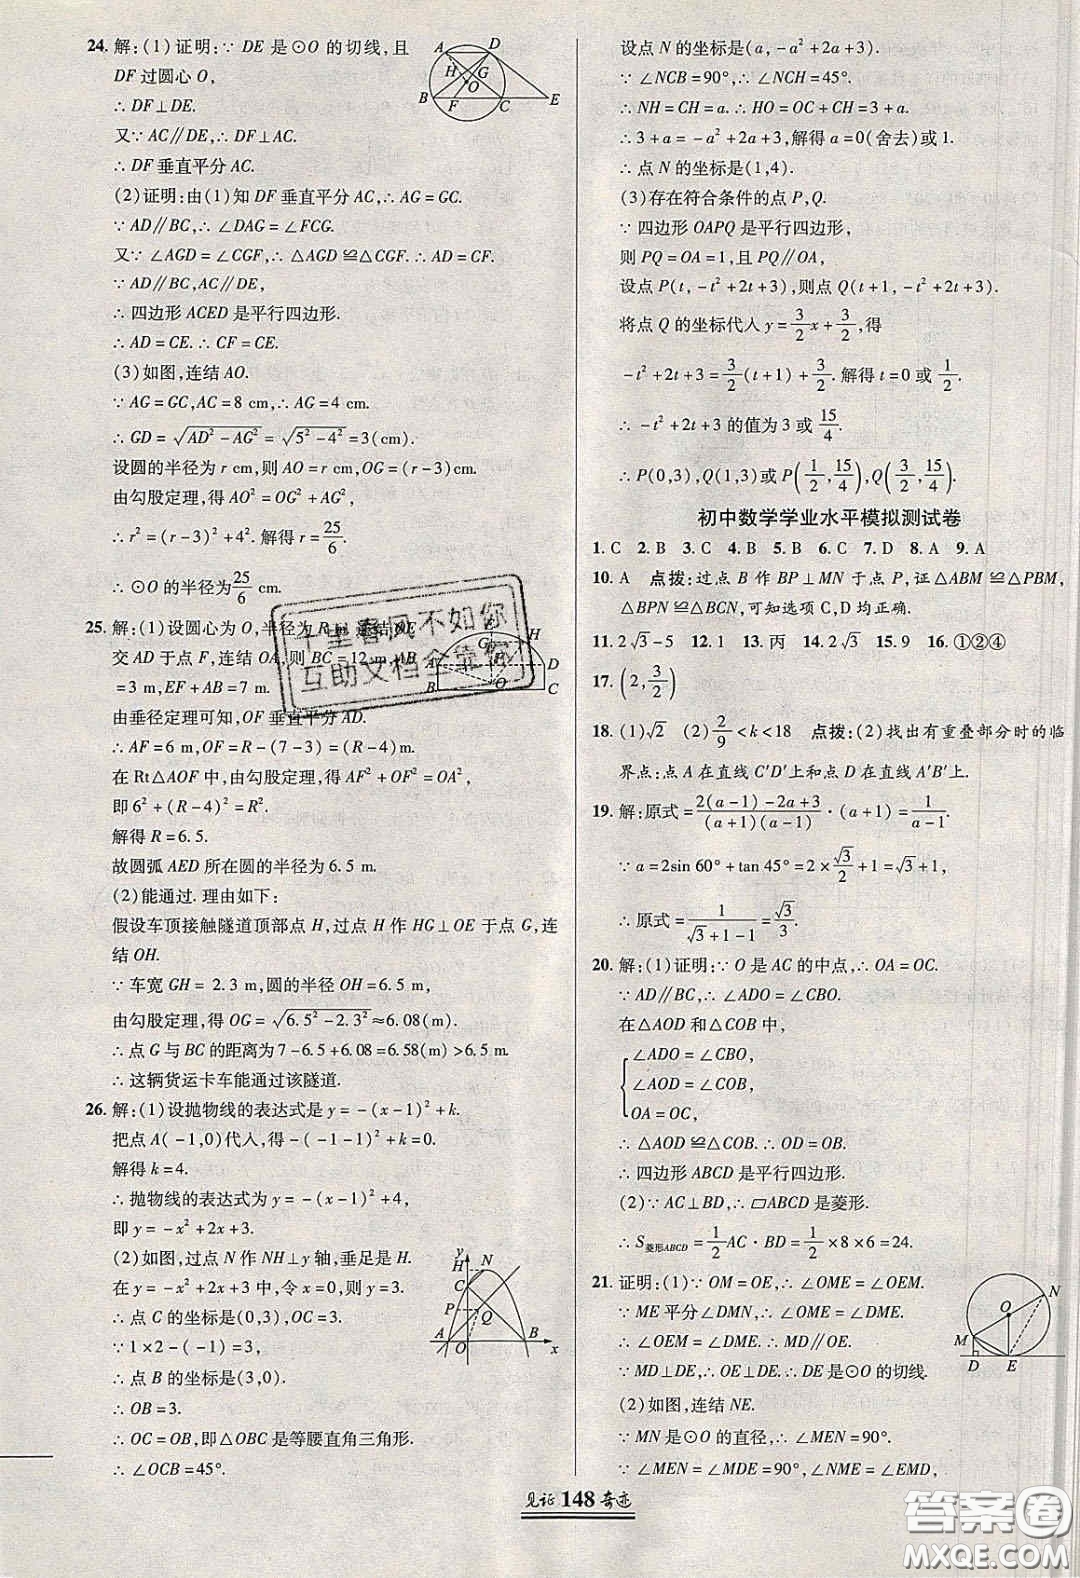 24. 解:(1)证明:∵ DE 是⊙O 的切线,且
DF 过圆心 O,
∴ DF⊥DE.
又∵ AC∥DE,∴ DF⊥AC.
∴ DF 垂直平分 AC.
(2)证明:由(1)知 DF 垂直平分 AC,∴ AG=GC.
∵ AD∥BC,∴ ∠DAG=∠FCG.
又∵ ∠AGD=∠CGF,∴ △AGD≌△CGF. ∴ AD=CF.
∵ AD∥BC,AC∥DE,
∴ 四边形 ACED 是平行四边形.
∴ AD=CE. ∴ CF=CE.
(3)如图,连结 AO.
∵ AG=GC,AC=8 cm,∴ AG=4 cm.
∴ GD=√(AD²-AG²)=√(5²-4²)=3(cm).
设圆的半径为 r cm,则 AO=r cm,OG=(r-3)cm.
由勾股定理,得 AO²=OG²+AG²,
∴ r²=(r-3)²+4². 解得 r=25/6.
∴ ⊙O 的半径为25/6 cm.
25. 解:(1)设圆心为 O,半径为 R m,连结 OE
交 AD 于点 F,连结 OA,则 BC=12 m,AB
=3 m,EF+AB=7 m.
由垂径定理可知,OF 垂直平分 AD.
∴ AF=6 m,OF=R-(7-3)=(R-4)m.
在 Rt△AOF 中,由勾股定理,得 AF²+OF²=OA²,
即 6²+(R-4)²=R².
解得 R=6.5.
故圆弧 AED 所在圆的半径为 6.5 m.
(2)能通过. 理由如下:
假设车顶接触隧道顶部点 H,过点 H 作 HG⊥OE 于点 G,连
结 OH.
∵ 车宽 GH= 2.3 m,圆的半径 OH=6.5 m,
由勾股定理,得 OG=√(6.5²-2.3²)≈6.08(m).
∴ 点 G 与 BC 的距离为 7-6.5+6.08=6.58(m)>6.5 m.
∴ 这辆货运卡车能通过该隧道.
26. 解:(1)设抛物线的表达式是 y=-(x-1)²+k.
把点 A(-1,0)代入,得 0=-(-1-1)²+k=0.
解得 k=4.
∴ 抛物线的表达式为 y=-(x-1)²+4,
即 y=-x²+2x+3.
(2)如图,过点 N 作 NH⊥y 轴,垂足是 H.
在 y=-x²+2x+3 中,令 x=0,则 y=3.
∴ 点 C 的坐标是(0,3),OC=3.
∵ 1×2-(-1)=3,
∴ 点 B 的坐标是(3,0).
∴ OB=3.
∴ OC=OB,即△OBC 是等腰直角三角形.
∴ ∠OCB=45°.
设点 N 的坐标是(a,-a²+2a+3).
∵ ∠NCB=90°,∴ ∠NCH=45°.
∴ NH=CH=a. ∴ HO=OC+CH=3+a.
∴ 3+a=-a²+2a+3,解得 a=0(舍去)或 1.
∴ 点 N 的坐标是(1,4).
(3)存在符合条件的点 P,Q.
∵ 四边形 OAPQ 是平行四边形,
则 PQ=OA=1,且 PQ∥OA.
设点 P(t,-t²+2t+3),则点 Q(t+1,-t²+2t+3).
将点 Q 的坐标代入 y=3/2x+3/2,得
-t²+2t+3=3/2(t+1)+3/2. 解得 t=0 或 1/2.
∴ -t²+2t+3 的值为 3 或 15/4.
∴ P(0,3),Q(1,3)或 P(1/2,15/4),Q(3/2,15/4).
初中数学学业水平模拟测试卷
1. C 2. B 3. C 4. B 5. B 6. C 7. D 8. A 9. A
10. A 点拨:过点 B 作 BP⊥MN 于点 P,证△ABM≌△PBM,
△BPN≌△BCN,可知选项 C,D 均正确.
11. 2√3-5 12. 1 13. 丙 14. 2√3 15. 9 16. ①②④
17. (2,3/2)
18. (1)√2 (2)2/9<k<18 点拨:(2)找出有重叠部分时的临
界点:点 A 在直线 C'D'上和点 D 在直线 A'B'上.
19. 解:原式=(2(a-1)-2a+3)/((a+1)(a-1))·(a+1)=1/(a-1).
∵ a=2sin 60°+tan 45°=2×√3/2+1=√3+1,
∴ 原式=1/(√3+1-1)=√3/3.
20. 解:(1)证明:∵ O 是 AC 的中点,∴ OA=OC.
∵ AD∥BC,∴ ∠ADO=∠CBO.
在△AOD 和△COB 中,
∠ADO=∠CBO,
∠AOD=∠COB,
OA=OC,
∴ △AOD≌△COB. ∴ OD=OB.
∴ 四边形 ABCD 是平行四边形.
(2)∵ AC⊥BD,∴ ▱ABCD 是菱形.
∴ S菱形ABCD=1/2AC·BD=1/2×8×6=24.
21. 证明:(1)∵ OM=OE,∴ ∠OME=∠OEM.
∵ ME 平分∠DMN,∴ ∠OME=∠DME.
∴ ∠OEM=∠DME. ∴ MD∥OE.
∵ MD⊥DE,∴ OE⊥DE. ∴ DE 是⊙O 的切线.
(2)如图,连结 NE.
∵ MN 是⊙O 的直径,∴ ∠MEN=90°.
∴ ∠MEN=∠MDE=90°. ∵ ∠NME=∠DME,
见证 148 奇迹
千里春风不如你
互助文档全靠你
答案圈
MXQE.COM